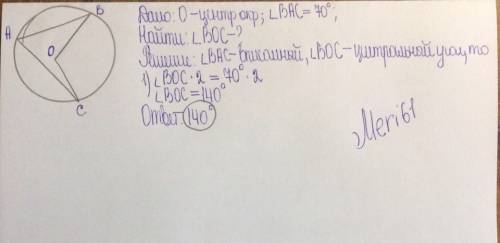 Дано: О-центр окр; ∠BAC = 70°;
Найти: ∠BOC-?
Решение: ∠BAC-вписанный, ∠BOC-центральный угол, то
1) ∠BOC · 2 = 70° · 2
∠BOC = 140°
Ответ: 140°
A
B
O
C
Meri61